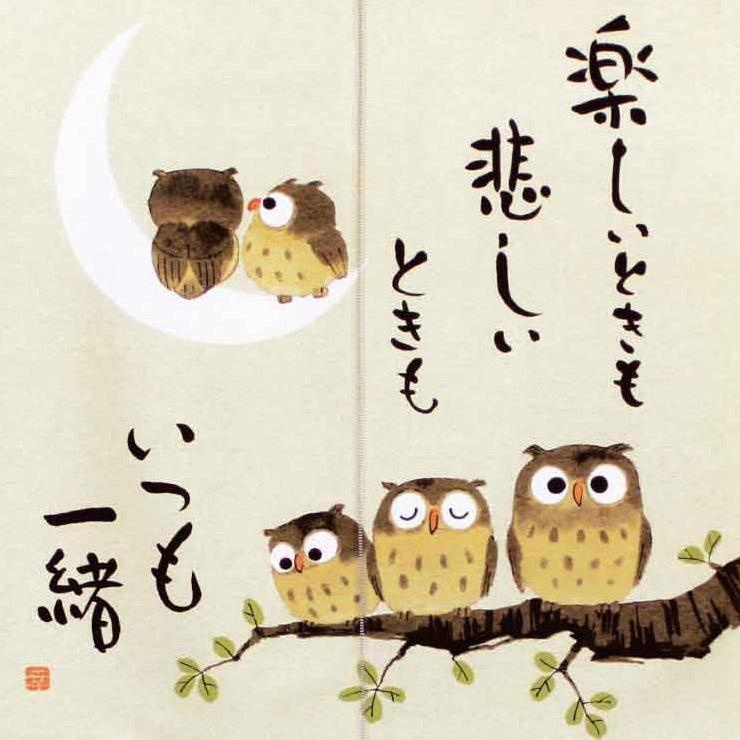 楽しいときも
悲しい
ときも
いつも
一緒
幸